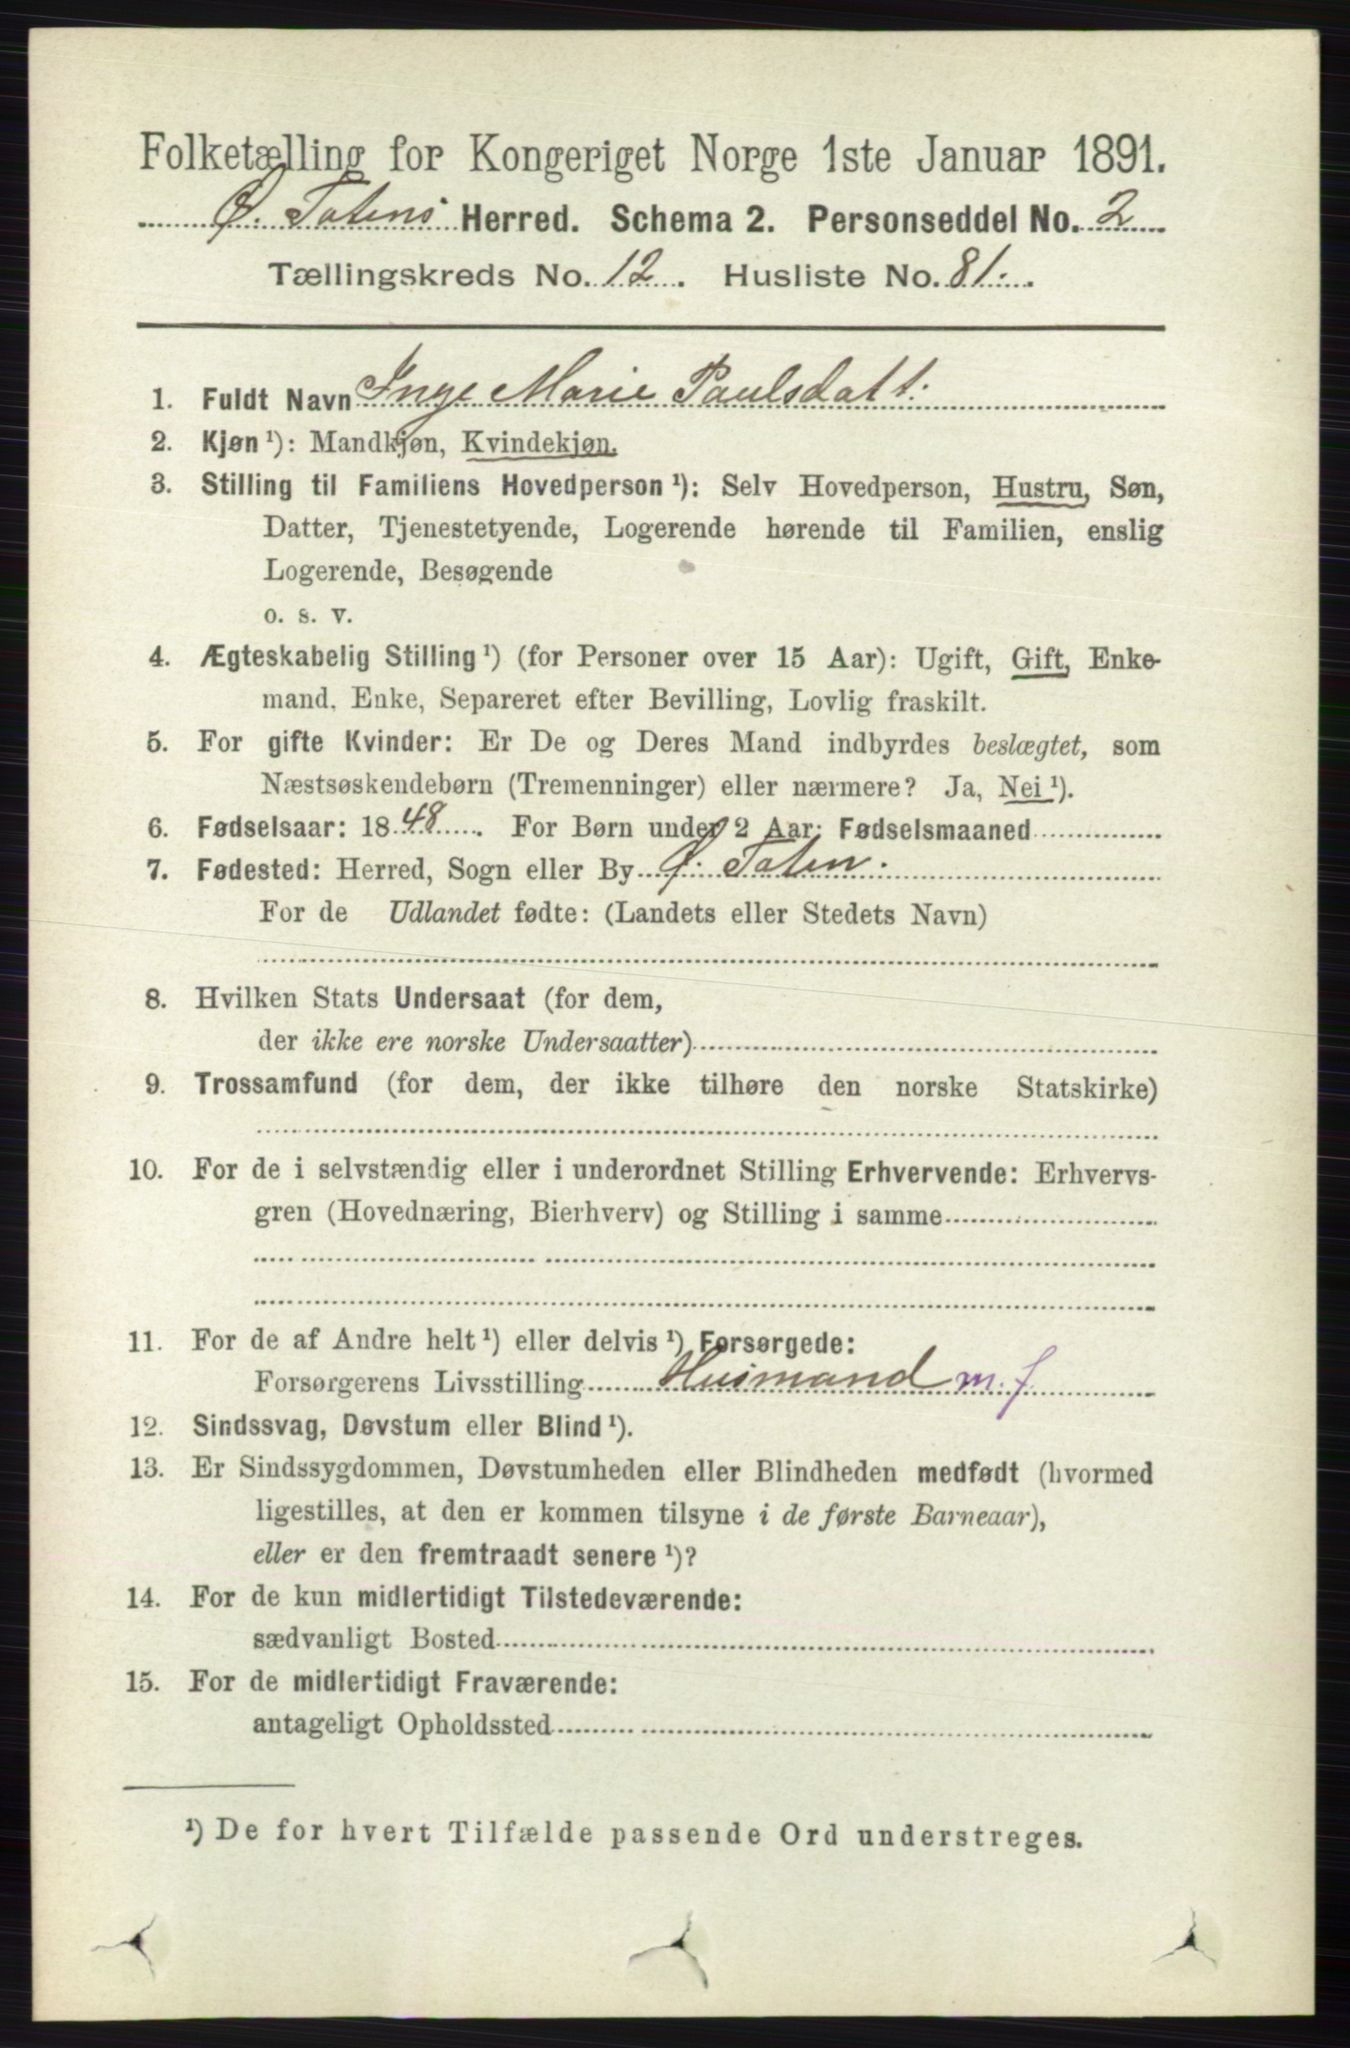 Folketælling for Kongeriget Norge 1ste Januar 1891.
Ø. Totens Herred. Schema 2. Personseddel No. 2
Tællingskreds No. 12. Husliste No. 81.
1. Fuldt Navn Inge Marie Paulsdatt.
2. Kjøn ¹): Mandkjøn, Kvindekjøn.
3. Stilling til Familiens Hovedperson ¹): Selv Hovedperson, Hustru, Søn,
Datter, Tjenestetyende, Logerende hørende til Familien, enslig
Logerende, Besøgende
o. s. v.
4. Ægteskabelig Stilling ¹) (for Personer over 15 Aar): Ugift, Gift, Enke-
mand, Enke, Separeret efter Bevilling, Lovlig fraskilt.
5. For gifte Kvinder: Er De og Deres Mand indbyrdes beslægtet, som
Næstsøskendebørn (Tremenninger) eller nærmere? Ja, Nei ¹).
6. Fødselsaar: 1848. For Børn under 2 Aar: Fødselsmaaned
7. Fødested: Herred, Sogn eller By Ø. Toten.
For de Udlandet fødte: (Landets eller Stedets Navn)
8. Hvilken Stats Undersaat (for dem,
der ikke ere norske Undersaatter)
9. Trossamfund (for dem, der ikke tilhøre den norske Statskirke)
10. For de i selvstændig eller i underordnet Stilling Erhvervende: Erhvervs-
gren (Hovednæring, Bierhverv) og Stilling i samme
11. For de af Andre helt ¹) eller delvis ¹) Forsørgede:
Forsørgerens Livsstilling Husmand m. f.
12. Sindssvag, Døvstum eller Blind ¹).
13. Er Sindssygdommen, Døvstumheden eller Blindheden medfødt (hvormed
ligestilles, at den er kommen tilsyne i de første Barneaar),
eller er den fremtraadt senere ¹)?
14. For de kun midlertidigt Tilstedeværende:
sædvanligt Bosted
15. For de midlertidigt Fraværende:
antageligt Opholdssted
¹) De for hvert Tilfælde passende Ord understreges.